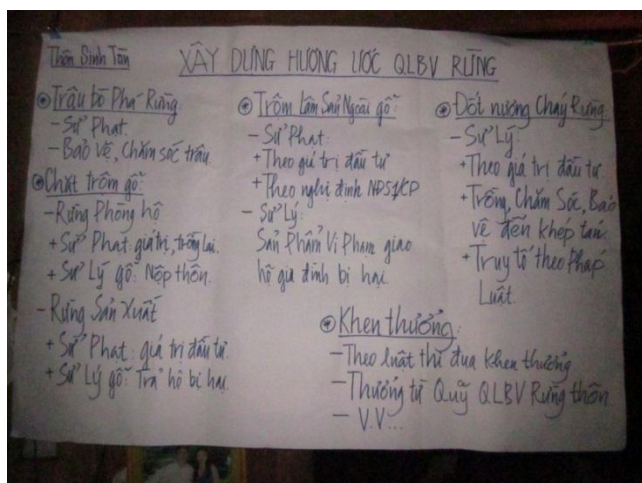 Thôn Sinh Tàn
XÂY DỰNG HƯƠNG ƯỚC QLBV RỪNG
⊙ Trâu bò Phá Rừng
- Sử Phạt.
- Bảo vệ, Chăm sóc trâu
⊙ Chặt trộm gỗ:
- Rừng Phòng hộ
+ Sử Phạt: giá trị, trồng lại.
+ Sử Lý gỗ: Nộp thôn.
- Rừng Sản Xuất
+ Sử Phạt: giá trị đầu tư
+ Sử Lý gỗ: Trả hộ bị hại.
⊙ Trộm Lâm Sản Ngoài gỗ:
- Sử Phạt:
+ Theo giá trị đầu tư
+ Theo nghị định NĐ51/CP
- Sử Lý:
Sản Phẩm Vi Phạm giao
hộ gia đình bị hại.
⊙ Đốt nương Cháy Rừng
- Sử Lý:
+ Theo giá trị đầu tư
+ Trồng, Chăm Sóc, Bảo
vệ đến khép tán.
+ Truy tố theo Pháp
Luật.
⊙ Khen thưởng:
- Theo luật thi đua khen thưởng
- Thưởng từ Quỹ QLBV Rừng thôn
- V.V...